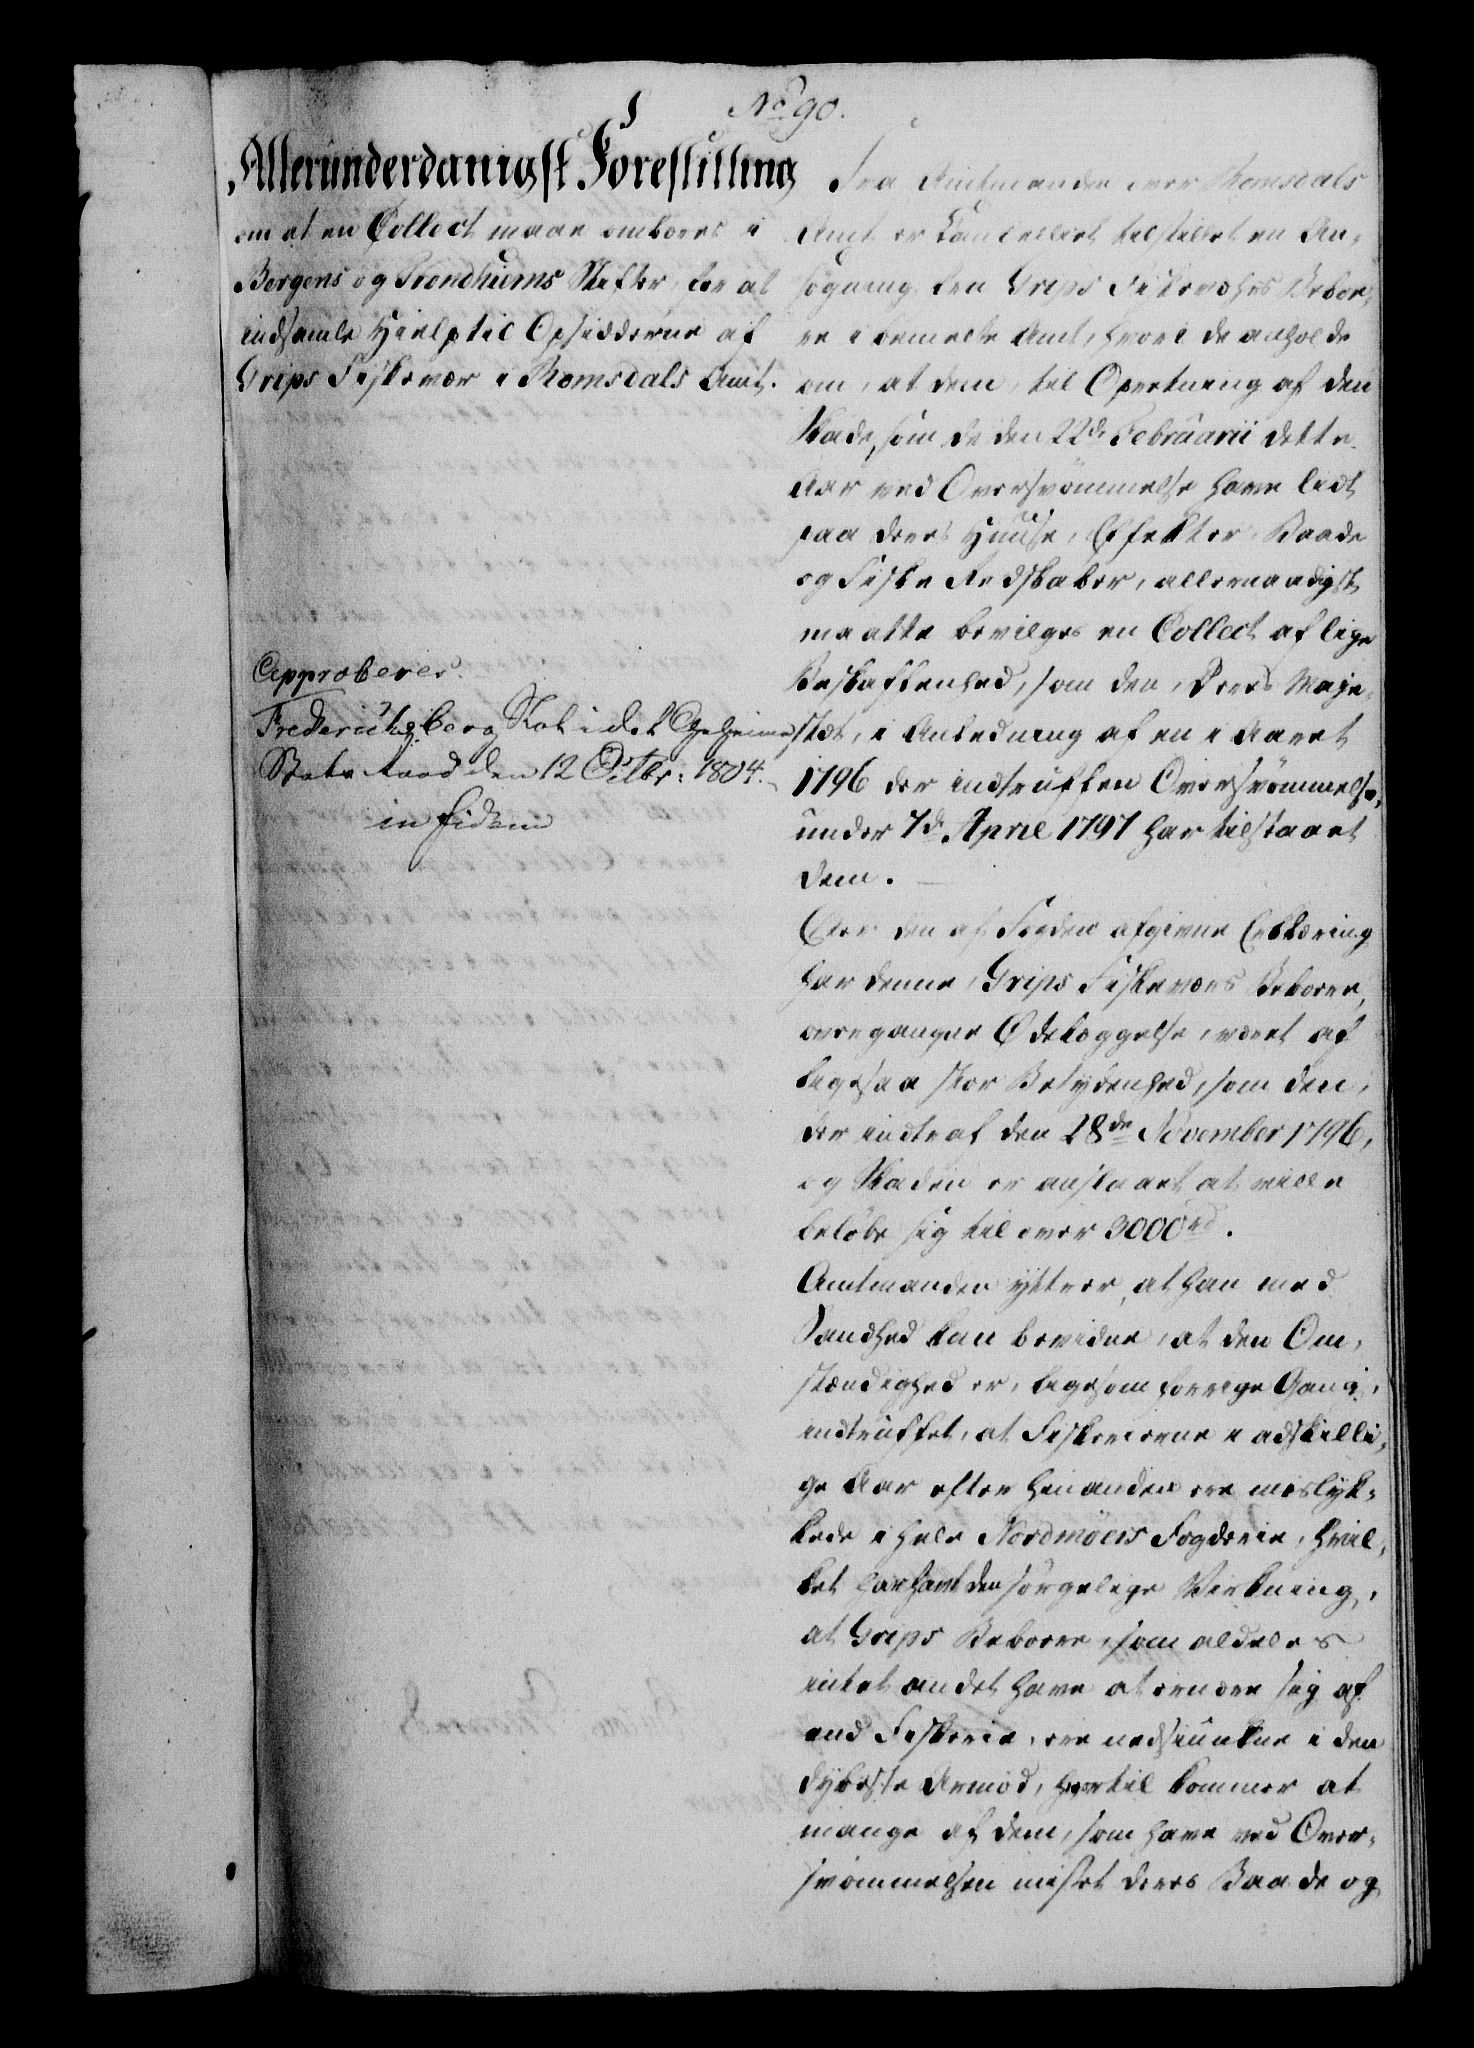 No 90.
Allerunderdanigst Forestilling
om at en Collect maae ombæres i
Bergens og Trondhiems Stifter, for at
indsamle Hielp til Opsidderne af
Grips Fiskevær i Romsdals Amt.
Approberes.
Friderichsberg Slot i det Geheime
Stats Raad den 12 Octbr: 1804.
in fidem
Fra Amtmanden over Romsdals
Amt er Cancelliet tilstillet en An-
søgning fra Grips Fiskeværs Beboe-
re i bemelte Amt, hvori de anholde
om, at dem, til Opretning af den
Skade, som de den 22de Februarii dette
Aar ved Oversvømmelse have lidt
paa deres Huuse, Effekter, Baade
og Fiske Redskaber, allernaadigst
maatte bevilges en Collect af lige
Beskaffenhed, som den, Deres Maje-
stæt, i Anledning af en i Aaret
1796 der indtruffen Oversvømmelse,
under 7de April 1797 har tilstaaet
dem.
Efter den af Fogden afgivne Erklæring
har denne, Grips Fiskeværs Beboere,
overgangne Ødelæggelse, været af
ligesaa stor Betydenhed, som den,
der indtraf den 28de November 1796,
og Skaden er anslaaet at ville
beløbe sig til over 3000 rd.
Amtmanden yttrer, at han med
Sandhed kan bevidne, at den Om-
stændighed er, ligesom forrige Gang,
indtruffet, at Fiskerierne i adskilli-
ge Aar efter hinanden ere mislyk-
kede i hele Nordmøers Fogderie, hvil-
ket har havt den sørgelige Virkning,
at Grips Beboere, som aldeles
intet andet have at ernære sig af
end Fiskerie, ere nedsiunkne i den
dybeste Armod, hertil kommer at
mange af dem, som have ved Over-
svømmelsen mistet deres Baade og